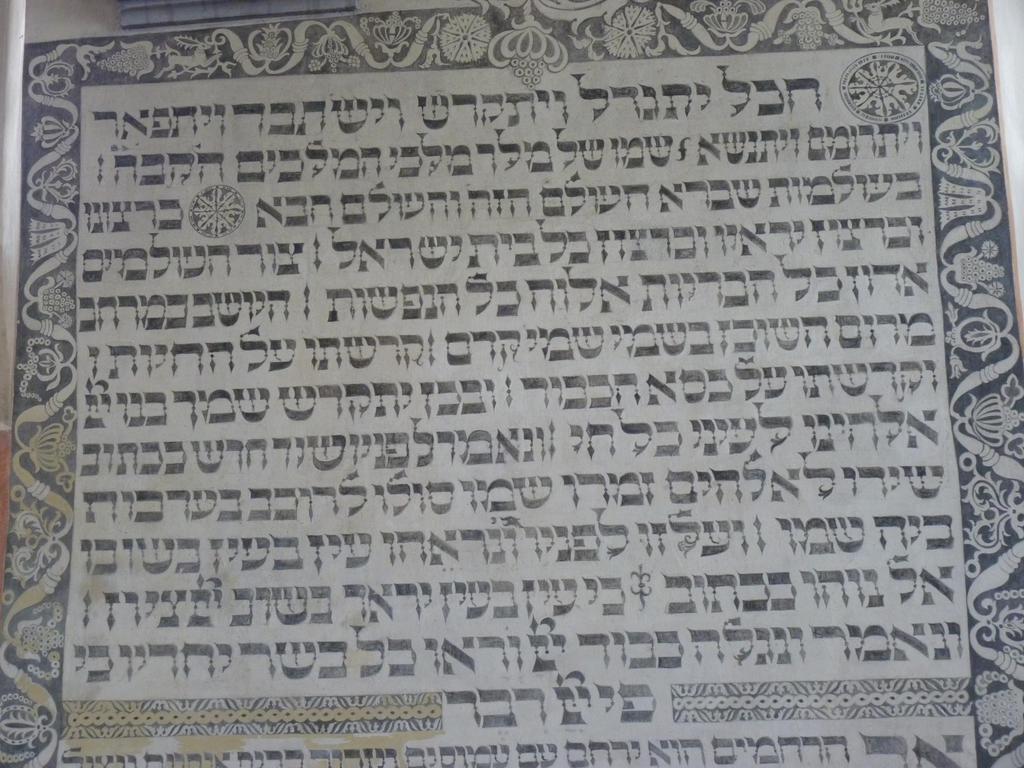 הכל יתגדל ויתקדש וישתבח ויתפאר
ויתרומם ויתנשא שמו של מלך מלכי המלכים הקבה
בעולמות שברא העולם הזה והעולם הבא כרצונו
וכרצון יראיו וכרצון כל בית ישראל צור העולמים
אדון כל הבריות אלוה כל הנפשות היושב במרחבי
מרום השוכן בשמי שמי קדם קדשתו על החיות ו
וקדשתו על כסא הכבוד ובכן יתקדש שמך בנו יי
אלהינו לעיני כל חי ונאמר לפניו שיר חדש ככתוב
שירו לאלהים זמרו שמו סולו לרוכב בערבות
ביה שמו ועלזו לפניו ונראהו עין בעין בשובו
אל נוהו ככתוב כי עין בעין יראו בשוב יי ציון
ונאמר ונגלה כבוד יי וראו כל בשר יחדיו כי
פי יי דבר
אב הרחמים הוא ירחם עם עמוסים